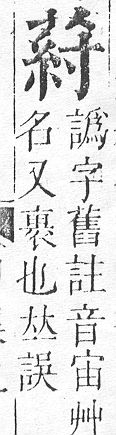 葤
譌字舊註音宙艸
名又裹也𠀤誤